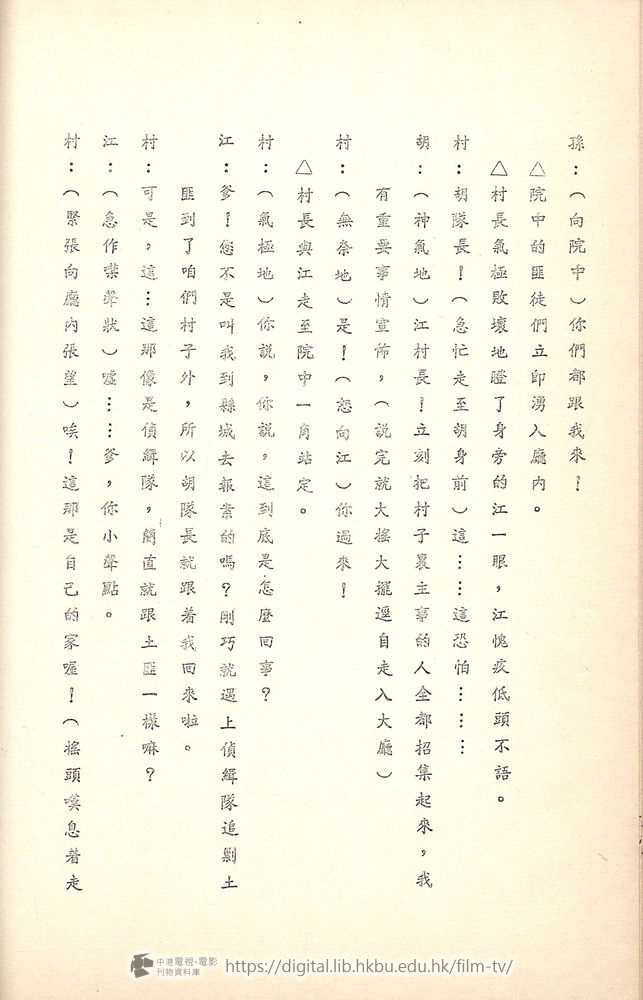 孫：（向院中）你們都跟我來！
△院中的匪徒們立即湧入廳內。
△村長氣極敗壞地瞪了身旁的江一眼，江愧疚低頭不語。
村：胡隊長！（急忙走至胡身前）這……這恐怕………
胡：（神氣地）江村長！立刻把村子裏主事的人全都招集起來，我
有重要事情宣佈，（說完就大搖大擺逕自走入大廳）
村：（無奈地）是！（怒向江）你過來！
△村長與江走至院中一角站定。
村：（氣極地）你說，你說，這到底是怎麼回事？
江：爹！您不是叫我到縣城去報案的嗎？剛巧就遇上偵緝隊追剿土
匪到了咱們村子外，所以胡隊長就跟着我回來啦。
村：可是，這…這那像是偵緝隊，簡直就跟土匪一樣嘛？
江：（急作噤聲狀）噓……爹，你小聲點。
村：（緊張向廳內張望）唉！這那是自己的家喔！（搖頭嘆息着走
中港電視・電影
刊物資料庫
https://digital.lib.hkbu.edu.hk/film-tv/